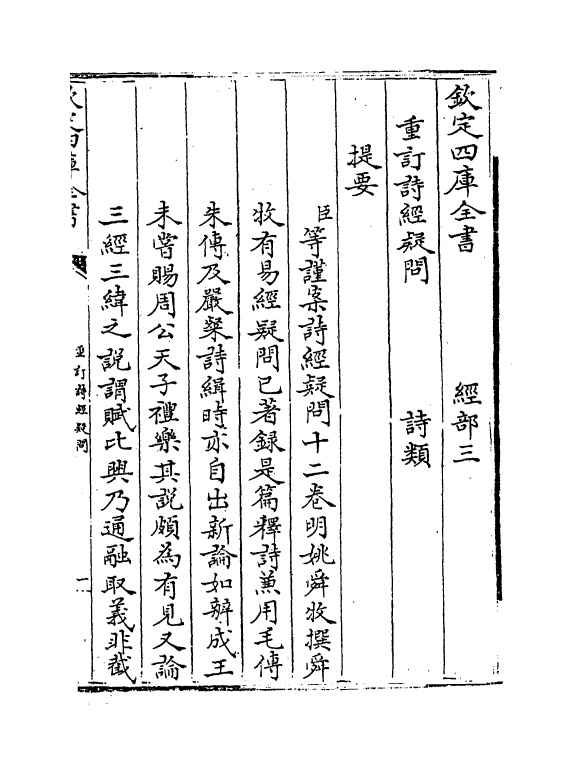 欽定四庫全書　　經部三
重訂詩經疑問　　詩類
提要
臣等謹案詩經疑問十二卷明姚舜牧撰舜
牧有易經疑問已著録是篇釋詩兼用毛傳
朱傳及嚴粲詩緝時亦自出新論如辨成王
未嘗賜周公天子禮樂其説頗為有見又論
三經三緯之説謂賦比興乃通融取義非截
欽定四庫全書
重訂詩經疑問
一